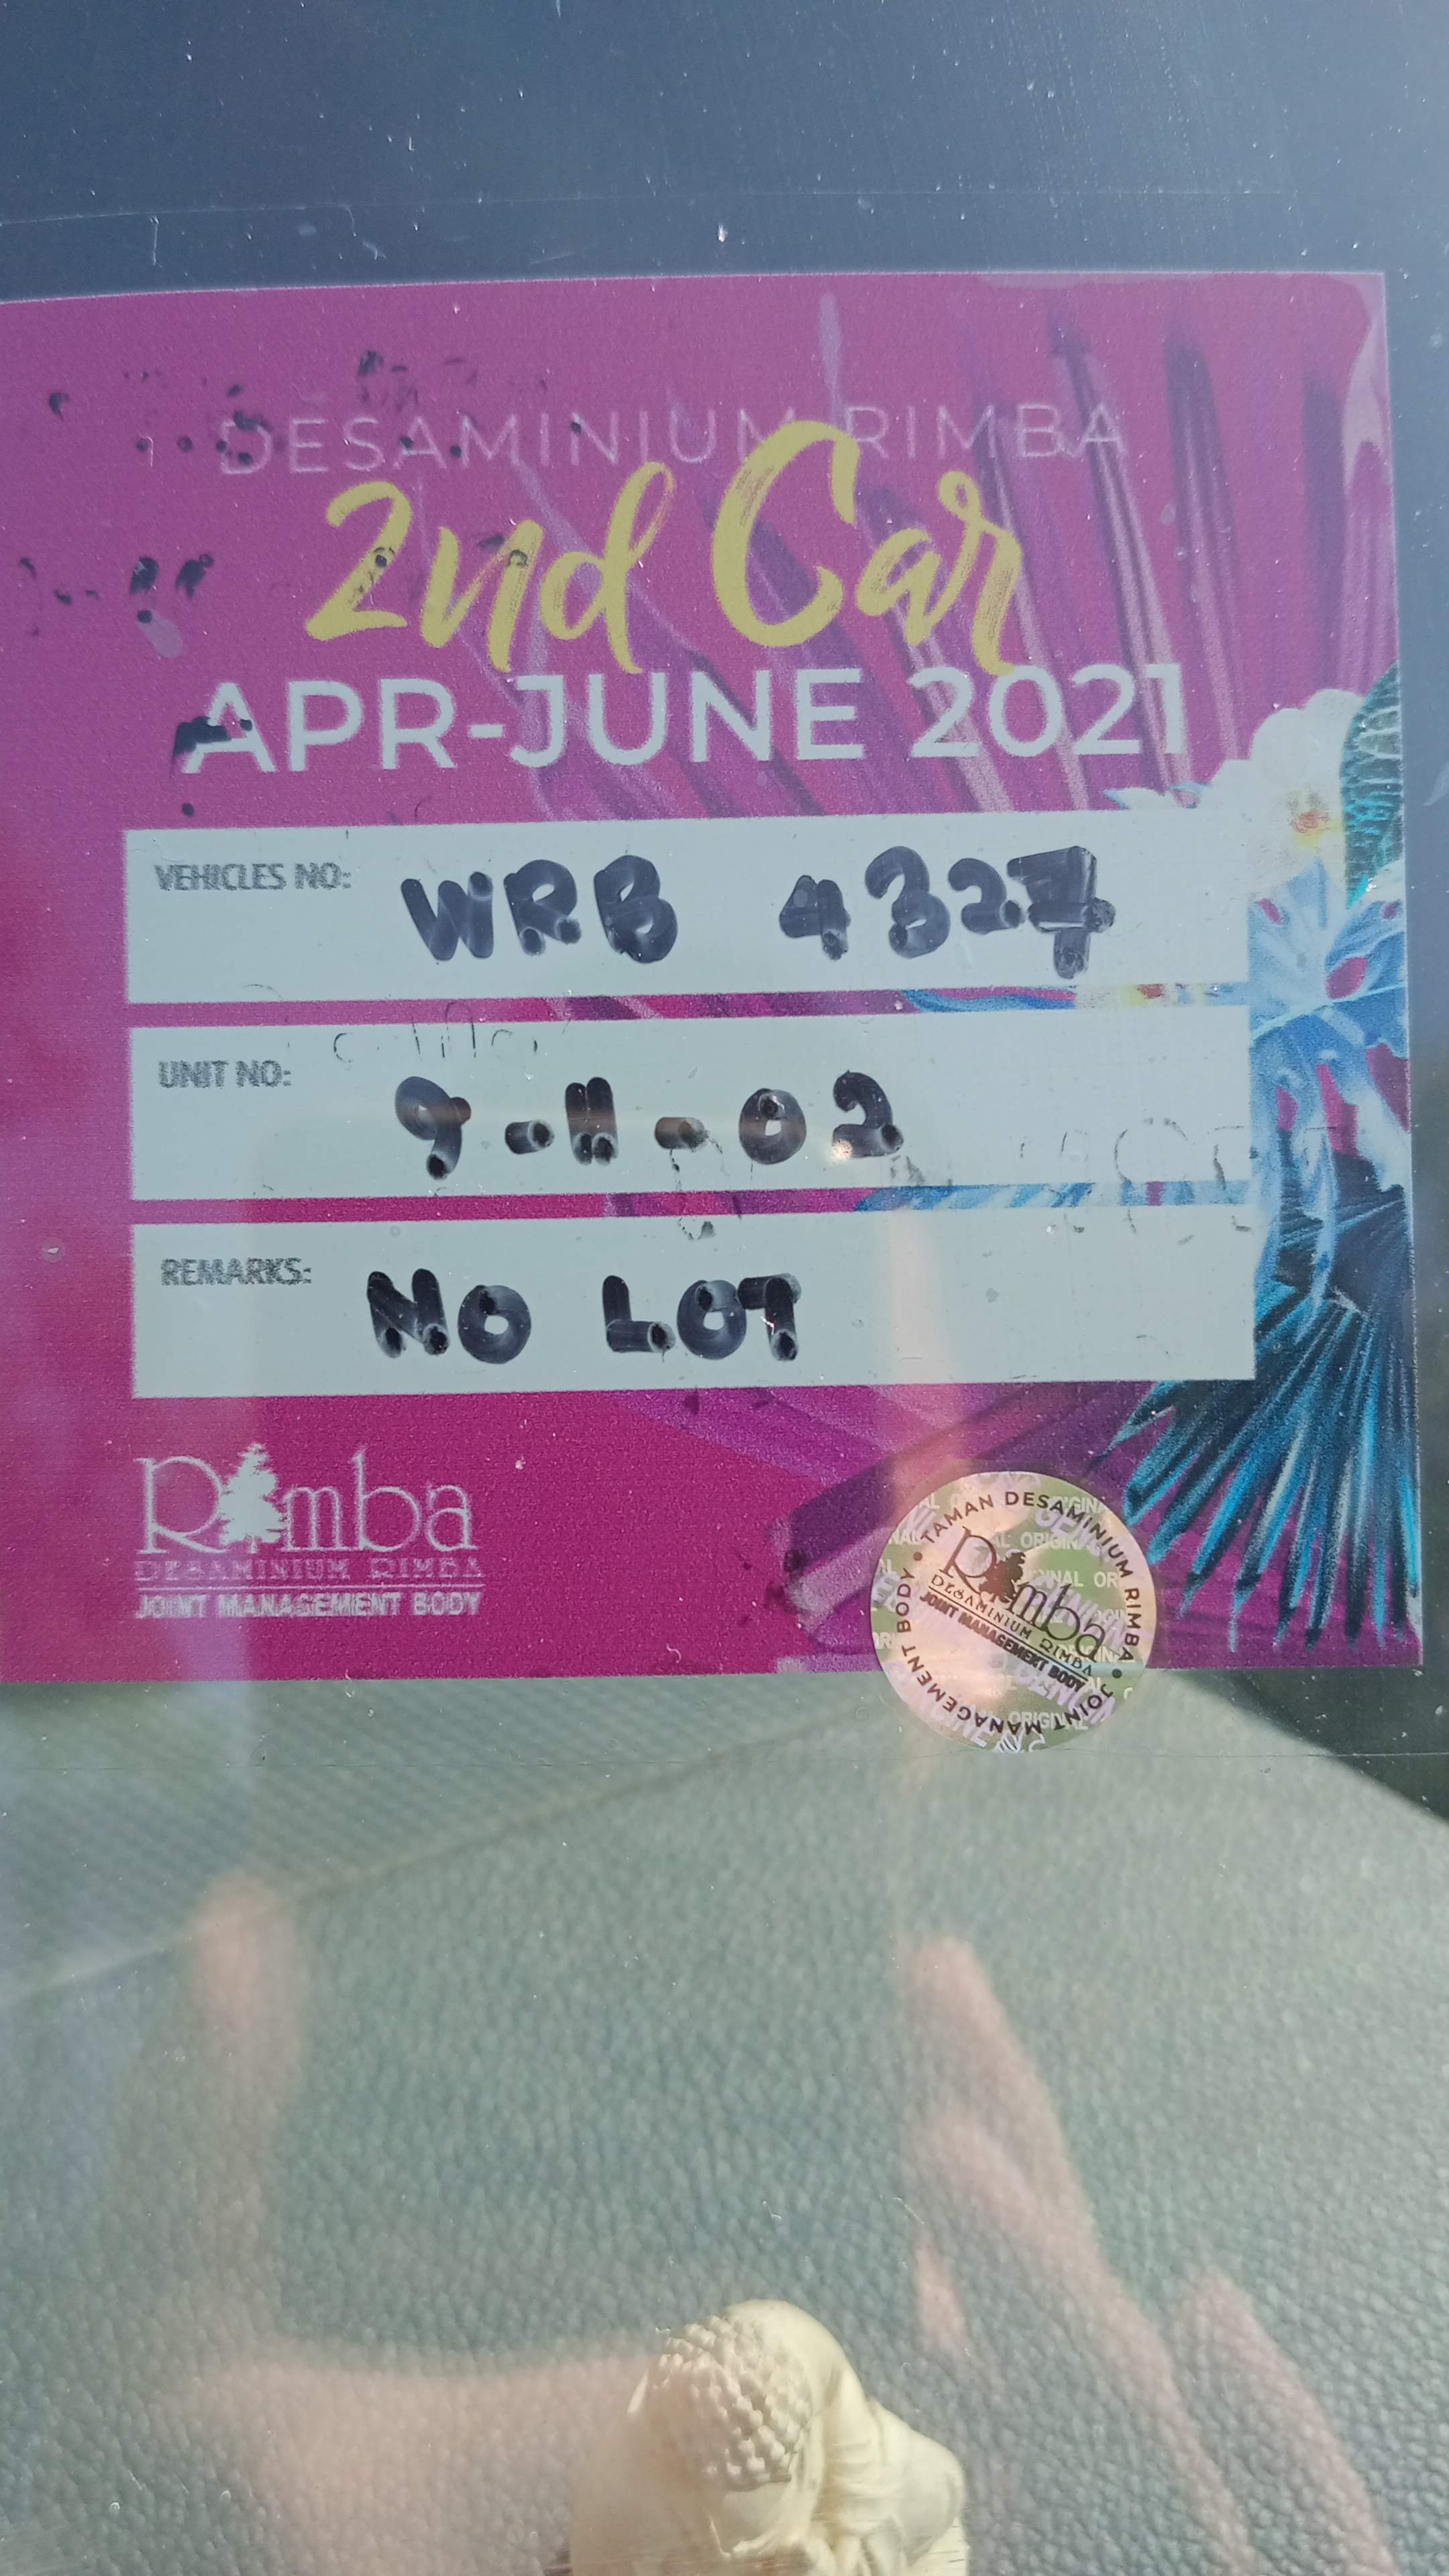 DESAMINIUM RIMBA
2nd Car
APR-JUNE 2021
VEHICLES NO: WRB 4327
UNIT NO: 9-11-02
REMARKS: NO LOT
Rimba
DESAMINIUM RIMBA
JOINT MANAGEMENT BODY
TAMAN DESAMINIUM RIMBA • JOINT MANAGEMENT BODY •
Rimba
DESAMINIUM RIMBA
JOINT MANAGEMENT BODY
ORIGINAL
GENUINE